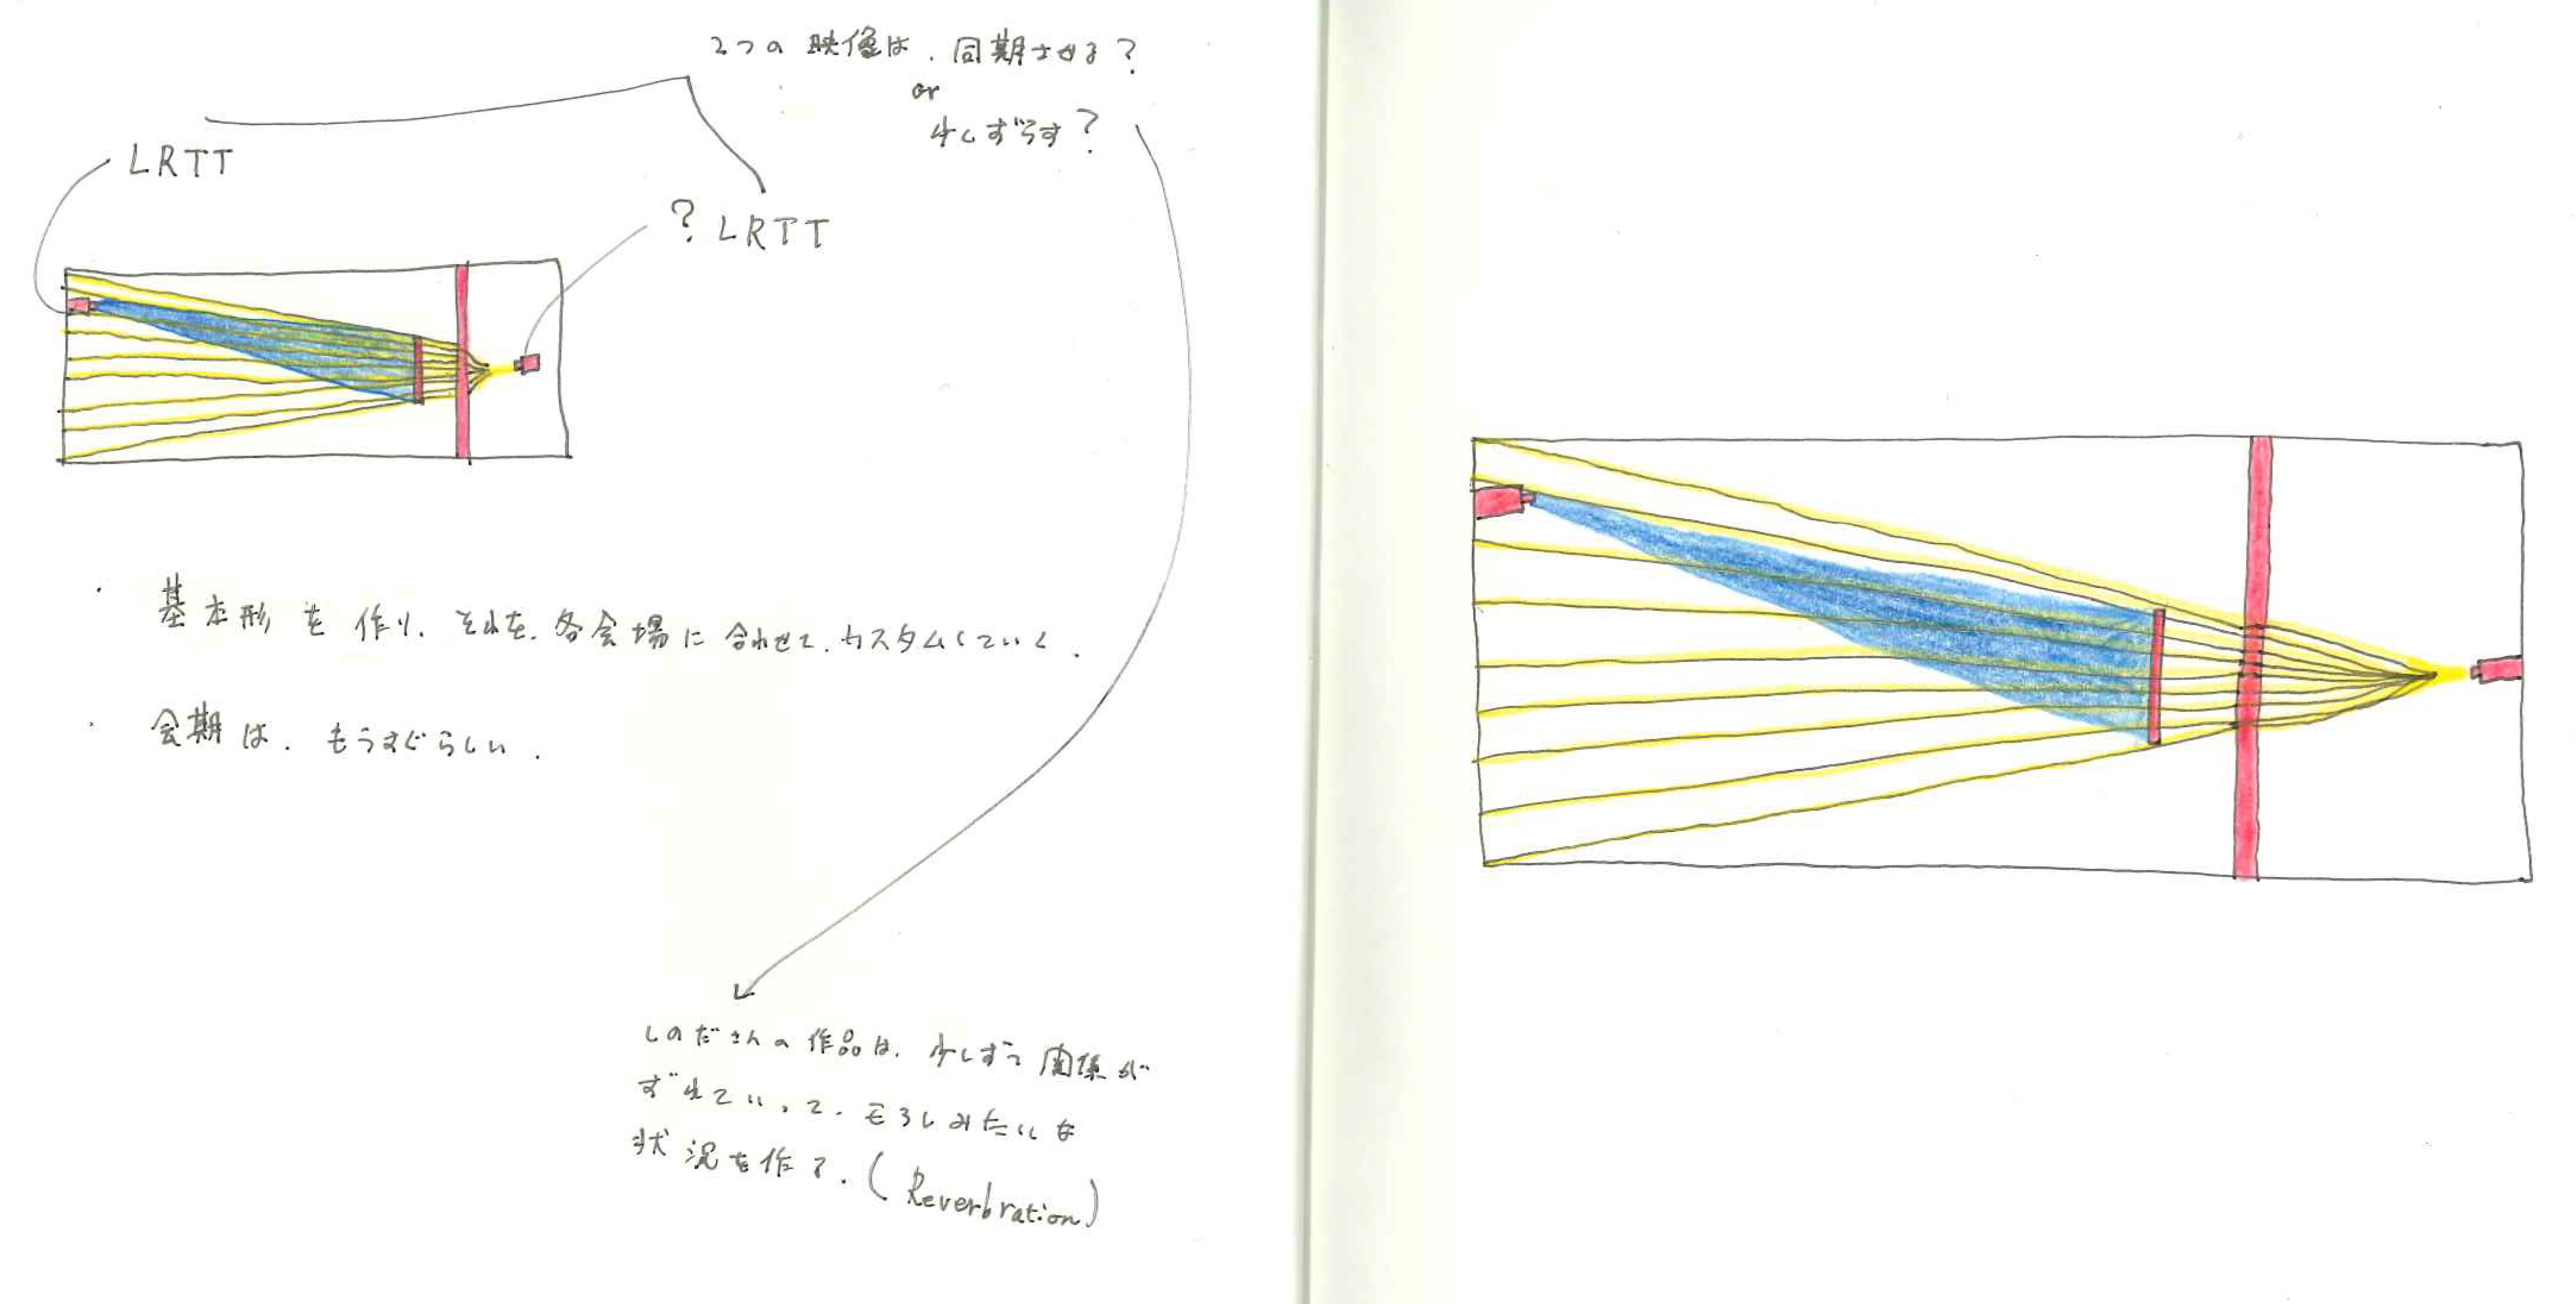 2つの映像は、同期させる?
or
少しずらす?
LRTT
? LRTT
・ 基本形を作り、それを、各会場に合わせて、カスタムしていく.
・ 会期は、もうすぐらしい.
しのださんの作品は、少しずつ関係が
ずれていって、もろしみたいな
状況を作る.(Reverbration)